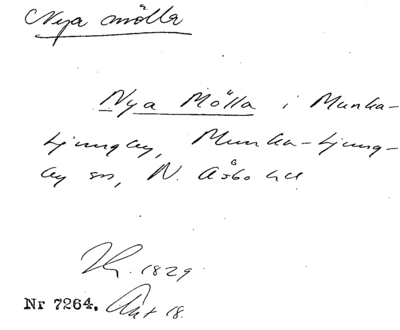 Nya mölla
Nya Mölla i Munka-
Ljungby, Munka-Ljung-
by sn, N. Åsbo hd
1829.
Nr 7264. Akt 18.